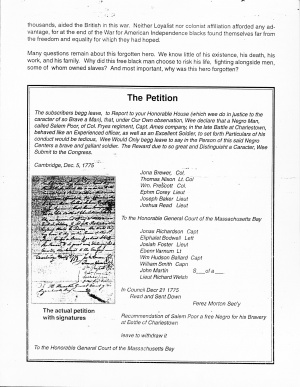 thousands, aided the British in this war. Neither Loyalist nor colonist affiliation afforded any ad-
vantage, for at the end of the War for American Independence blacks found themselves far from
the freedom and equality for which they had hoped.
Many questions remain about this forgotten hero. We know little of his existence, his death, his
work, and his family. Why did this free black man choose to risk his life, fighting alongside men,
some of whom owned slaves? And most important, why was this hero forgotten?
The Petition
The subscribers begg leave, to Report to your Honorable House (which wee do in justice to the
caracter of so Brave a Man), that, under Our Own observation, Wee declare that a Negro Man,
called Salem Poor, of Col. Fryes regiment, Capt. Ames company, in the late Battle at Charlestown,
behaved like an Experienced officer, as well as an Excellent Soldier, to set forth Particulars of his
conduct would be tedious, Wee Would Only begg leave to say in the Person of this said Negro
Centers a brave and gallant soldier. The Reward due to so great and Distinguisht a Caracter, Wee
Submit to the Congress.
Cambridge, Dec. 5, 1775
Jona Brewer, Col.
Thomas Nixon Lt. Col
Wm. Prescott Col.
Ephm Corey Lieut
Joseph Baker Lieut
Joshua Read Lieut
To the Honorable General Court of the Massachusetts Bay
Jonas Richardson Capt
Eliphalet Bodwell Lett
Josiah Foster Lieut
Ebenr Varnum Lt
Wm Hudson Ballard Capt
William Smith Capn
John Martin S__of a__
Lieut Richard Welch
In Council Decr 21 1775
Read and Sent Down
Perez Morton Sec'y
The actual petition
with signatures
Recommendation of Salem Poor a free Negro for his Bravery
at Battle of Charlestown
leave to withdraw it
To the Honorable General Court of the Massachusetts Bay